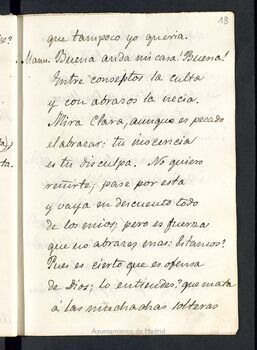 18
que tampoco yo queria.
Manu. Buena anda mi casa! Buena!
Entre conseptos la culta
y con abrasos la necia.
Mira Clara, aunque es pecado
el abrazar; tu inocencia
es tu disculpa. No quiero
reñirte; pase por esta
y vaya en descuento todo
de los mios; pero es fuerza
que no abrazes mas: Estamos?
Pues es cierto que es ofensa
de Dios; lo entiendes? que mata
á las muchachas solteras
Ayuntamiento de Madrid